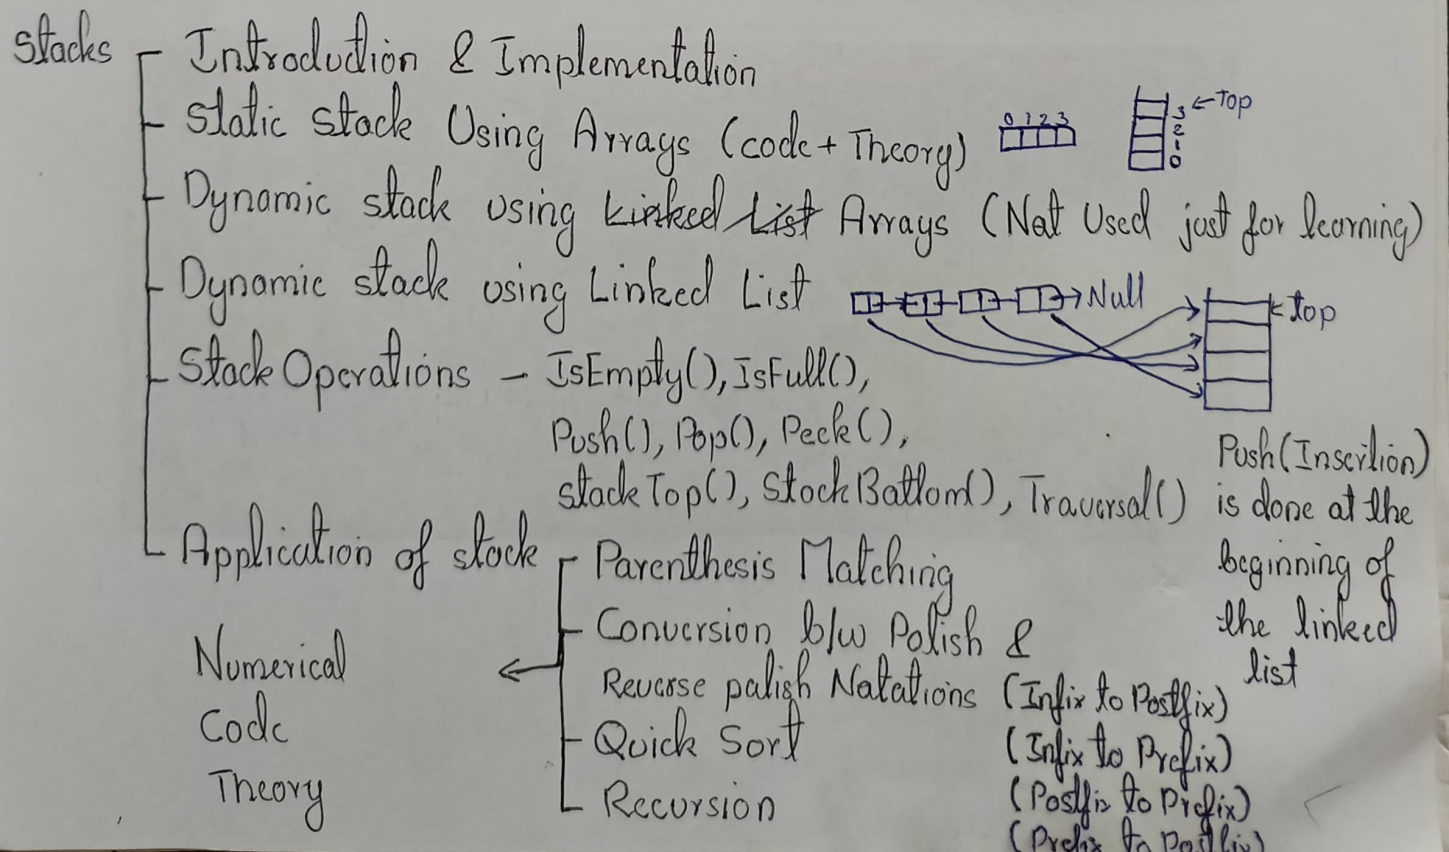 Stacks
Introduction & Implementation
Static Stack Using Arrays (code + Theory)
0 1 2 3
← Top
3
2
1
0
Dynamic stack using Linked List Arrays (Not Used just for learning)
Dynamic stack using Linked List
→ Null
← top
Stack Operations - IsEmpty(), IsFull(),
Push(), Pop(), Peek(),
stackTop(), StackBottom(), Traversal()
Push (Insertion)
is done at the
beginning of
the linked
list
Application of stack
Parenthesis Matching
Conversion b/w Polish &
Reverse polish Notations (Infix to Postfix)
(Infix to Prefix)
(Postfix to Prefix)
(Prefix to Postfix)
Quick Sort
Recursion
Numerical
Code
Theory